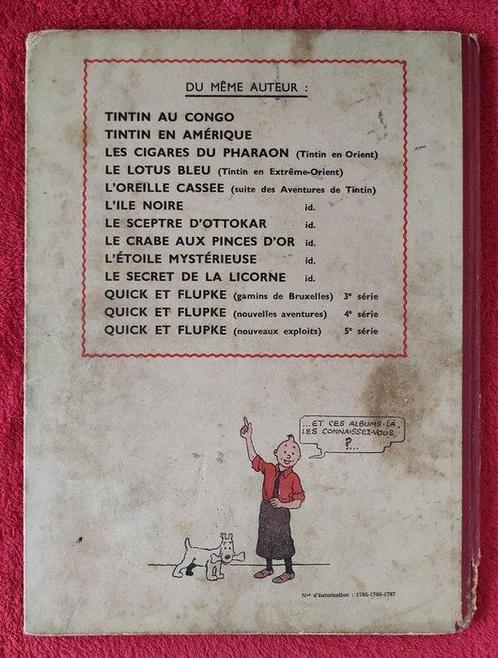 DU MÊME AUTEUR :
TINTIN AU CONGO
TINTIN EN AMÉRIQUE
LES CIGARES DU PHARAON (Tintin en Orient)
LE LOTUS BLEU (Tintin en Extrême-Orient)
L'OREILLE CASSÉE (suite des Aventures de Tintin)
L'ILE NOIRE id.
LE SCEPTRE D'OTTOKAR id.
LE CRABE AUX PINCES D'OR id.
L'ÉTOILE MYSTÉRIEUSE id.
LE SECRET DE LA LICORNE id.
QUICK ET FLUPKE (gamins de Bruxelles) 3e série
QUICK ET FLUPKE (nouvelles aventures) 4e série
QUICK ET FLUPKE (nouveaux exploits) 5e série
...ET CES ALBUMS-LÀ,
LES CONNAISSEZ-VOUS
?...
Nos d'autorisation : 1785-1786-1787